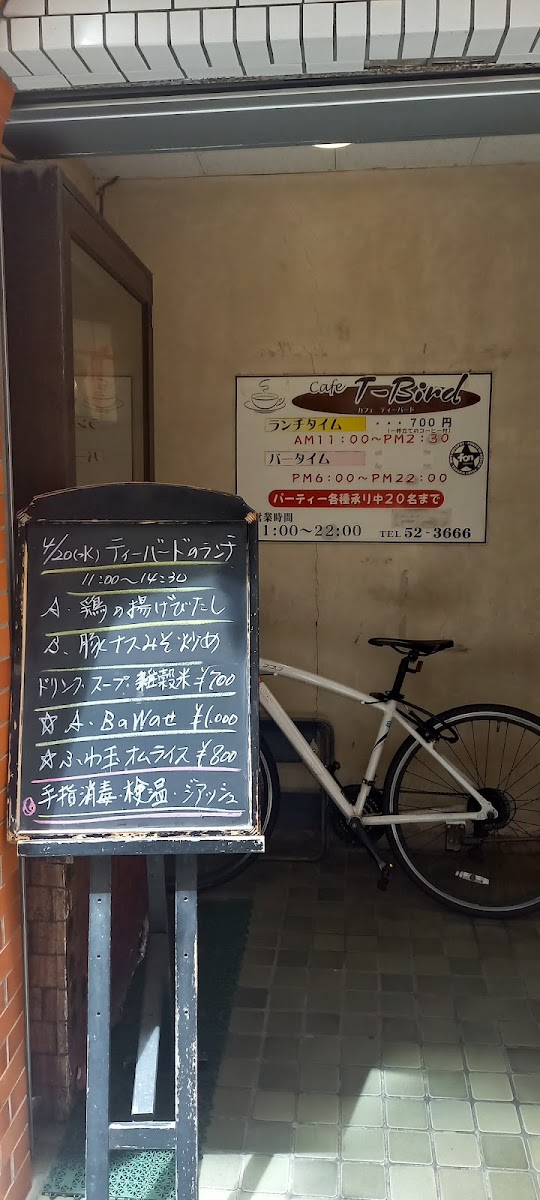 Cafe T-Bird
カフェ ティーバード
ランチタイム ・・・700円
(一杯立てのコーヒー付)
AM11:00〜PM2:30
バータイム
PM6:00〜PM22:00
パーティー各種承り中20名まで
営業時間
1:00〜22:00 TEL 52-3666
4/20(水) ティーバードのランチ
11:00〜14:30
A. 鶏の揚げびたし
B. 豚ナスみそ炒め
ドリンク・スープ・雑穀米 ¥700
☆ A・B 合わせ ¥1,000
☆ ふわ玉オムライス ¥800
手指消毒・検温・ジアッシュ